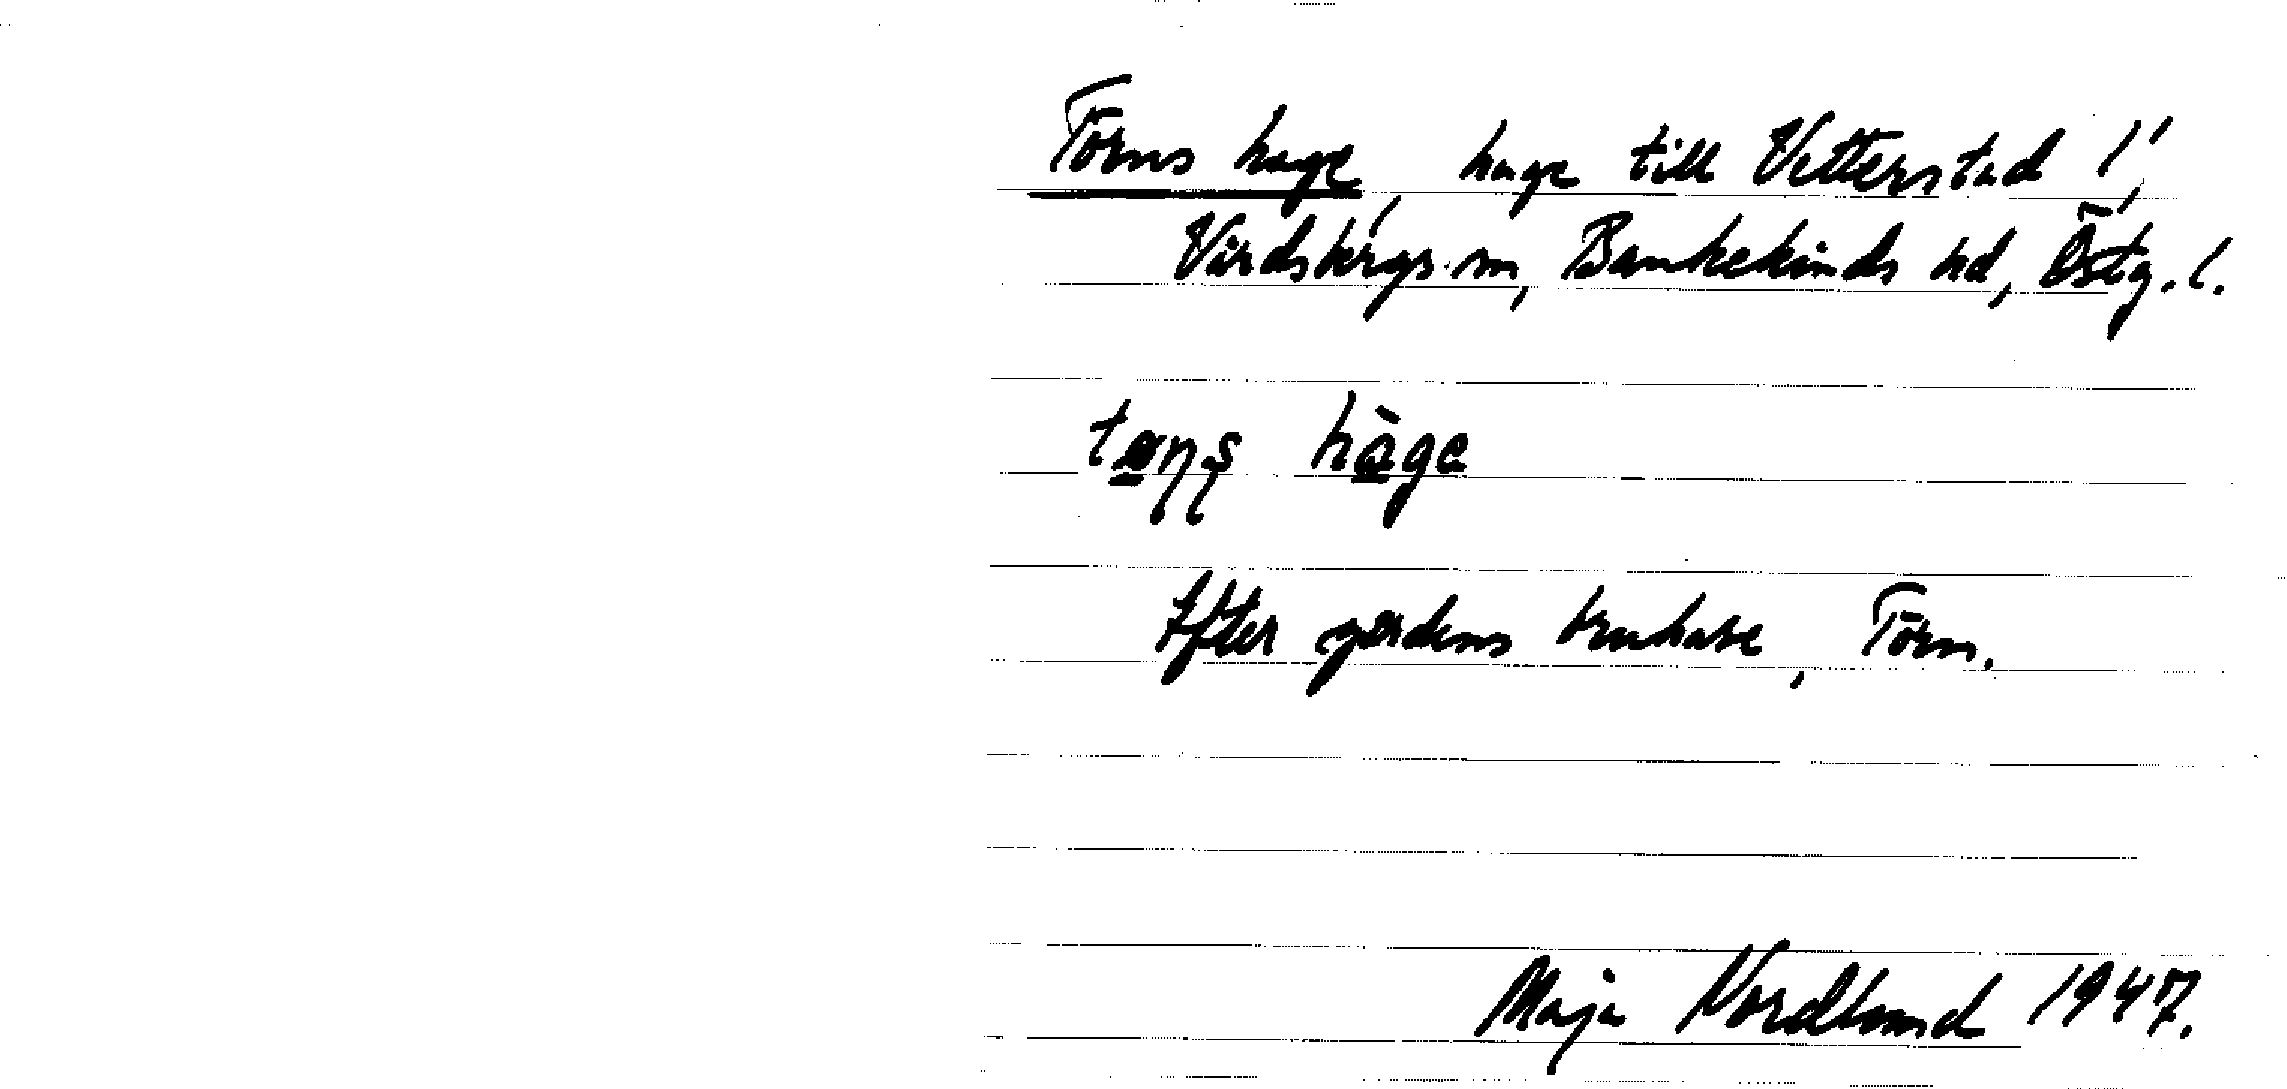 Törns hage, hage till Vetterstad 1,
Vårdsbergs sn, Bankekinds hd, Östg. l.
hàge
Efter gårdens brukare, Törn.
Maja Nordlund 1947.